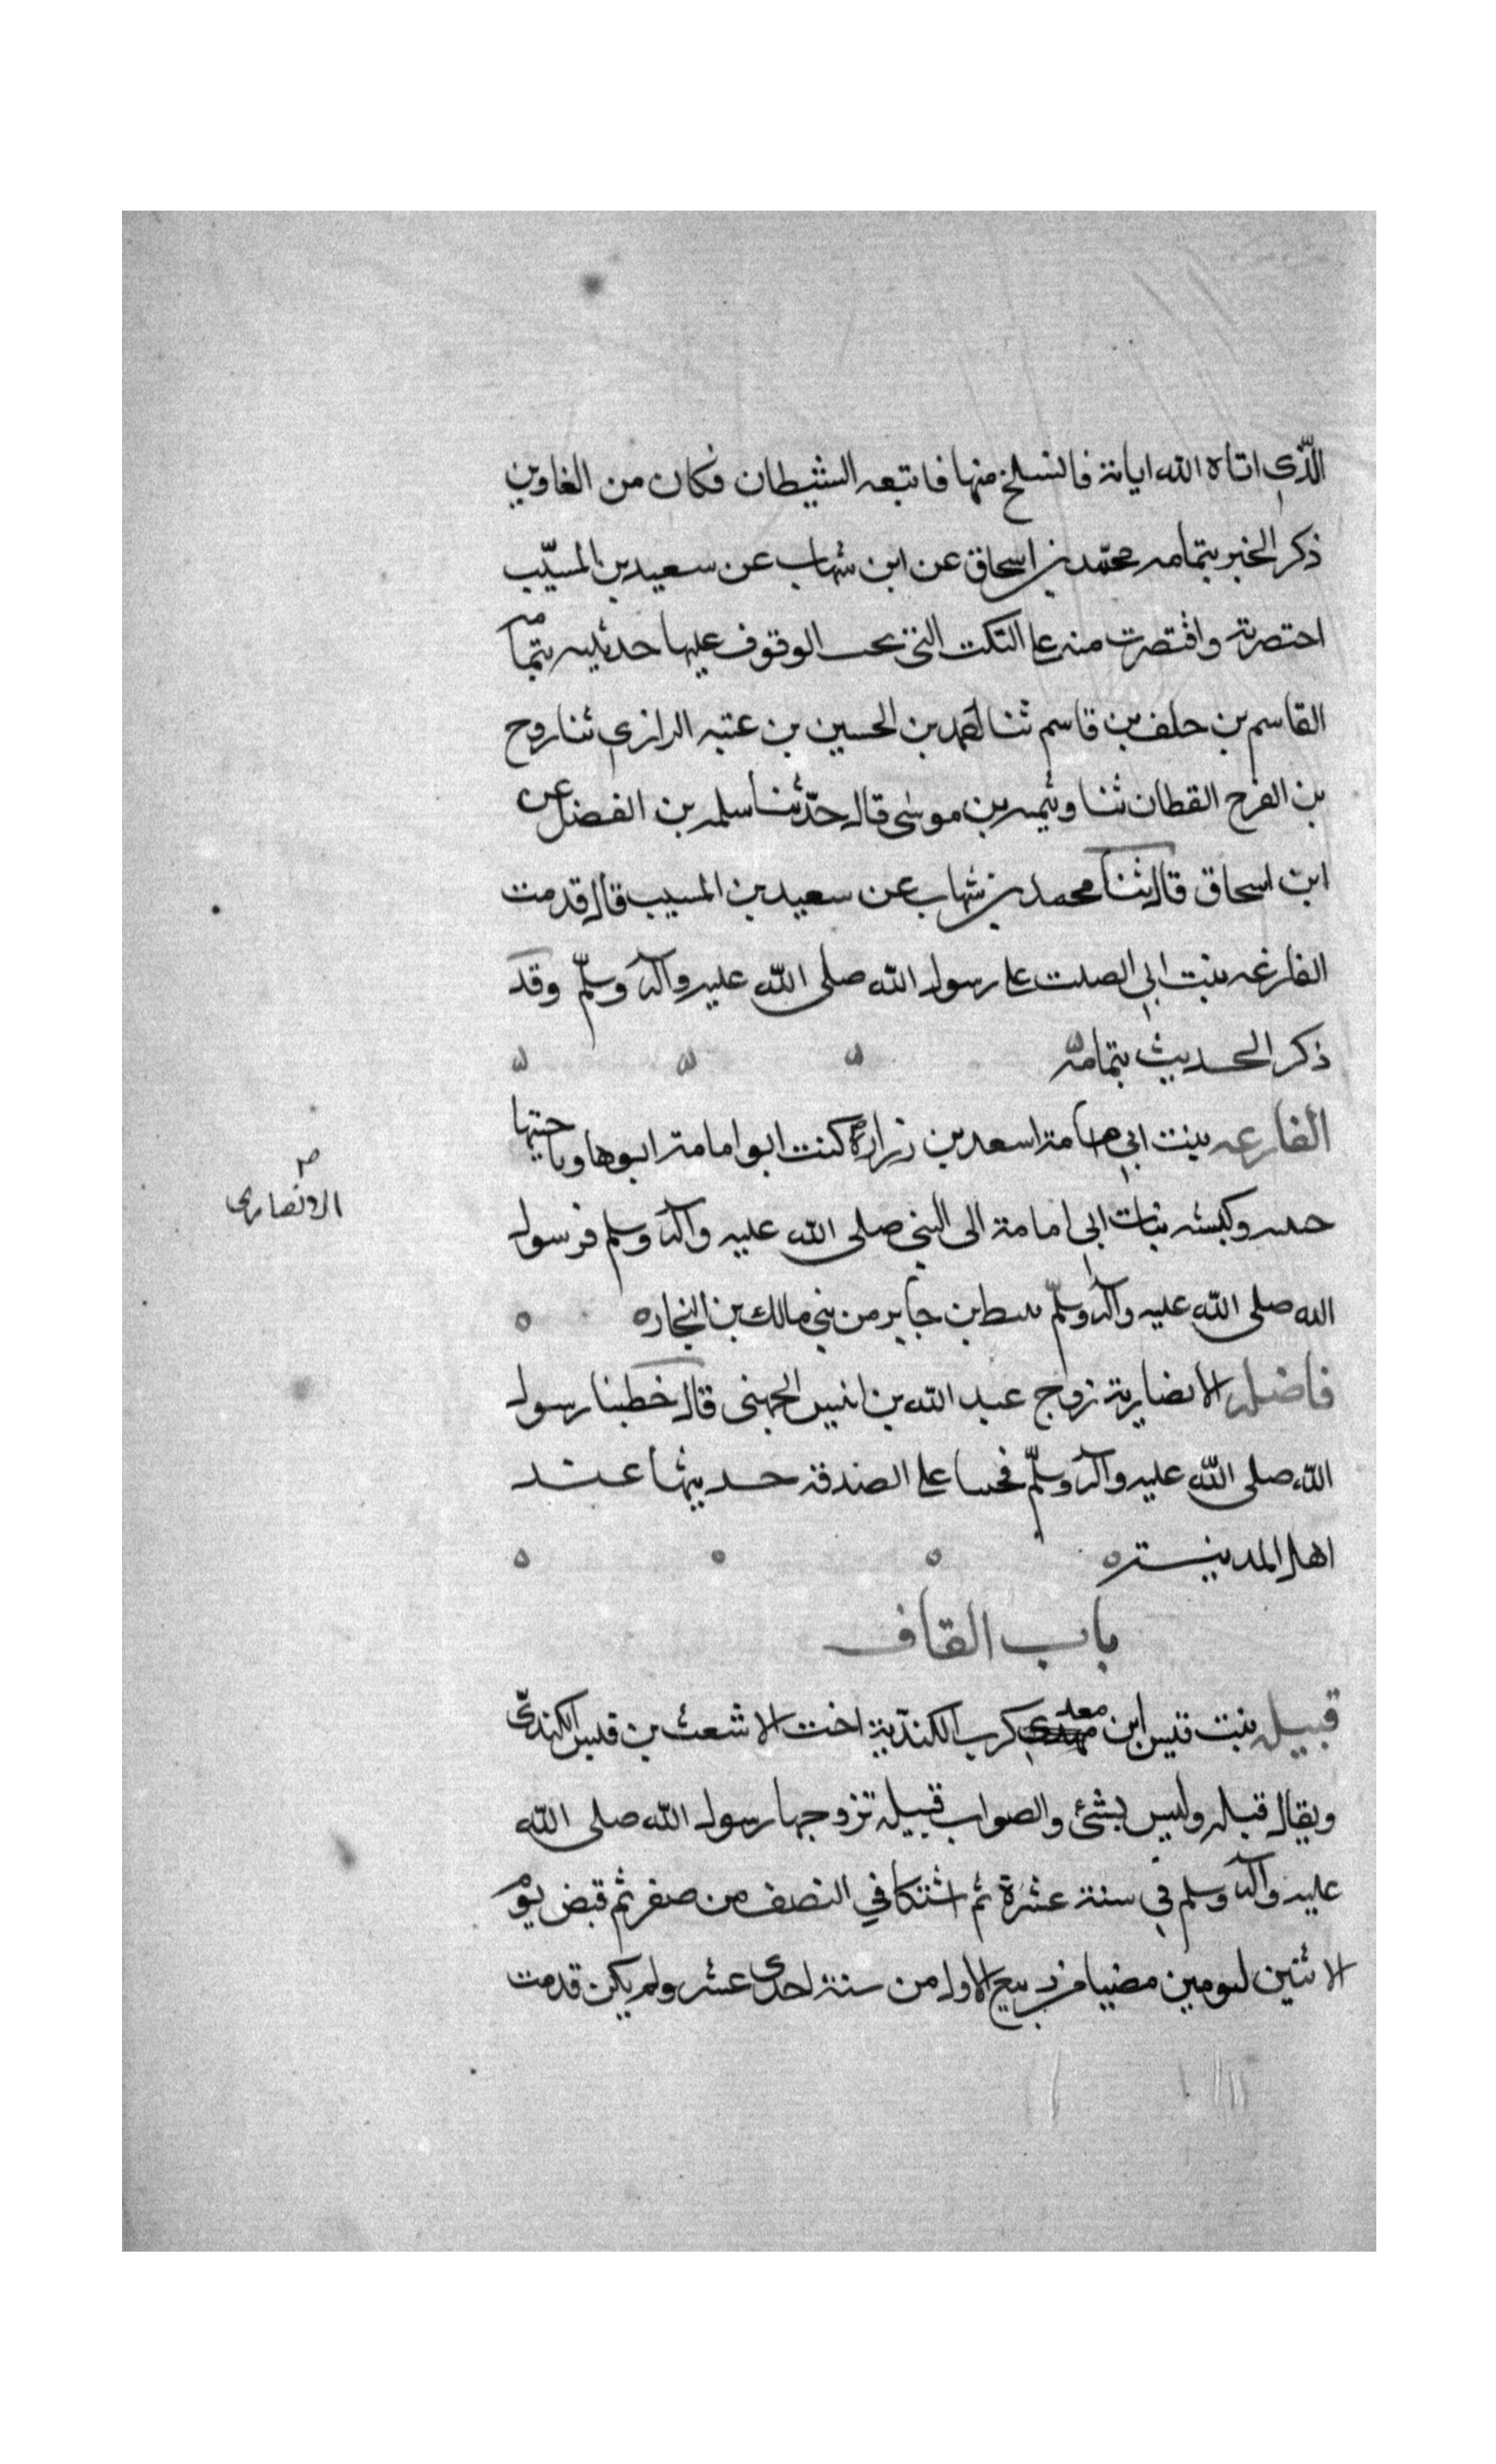 الّذي اتاه الله اياته فانسلخ منها فاتبعه الشيطان فكان من الغاوين
ذكر الخبر بتمامه محمّد بن اسحاق عن ابن شهاب عن سعيد بن المسيّب
اختصرته واقتصرت منه على النكت التي يجب الوقوف عليها حدثنيه بتمامه
القاسم بن خلف بن قاسم ثنا احمد بن الحسين بن عتبه الرازي ثنا روح
بن الفرج القطان ثنا وثيمه بن موسى قال حدّثنا سلمه بن الفضل عن
ابن اسحاق قال ثنا محمد بن شهاب عن سعيد بن المسيب قال قدمت
الفارغه بنت ابي الصلت على رسول الله صلى الله عليه وآله وسلّم وقد
ذكر الحديث بتمامه
الفارعه بنت ابي امامة اسعد بن زرارة كنت ابو امامة ابوها وباختيها
الانصاري
وكبشه بنات ابي امامة الى النبي صلى الله عليه وآله وسلم فرسول
الله صلى الله عليه وآله وسلّم بن جابر من بني مالك بن النجار ه
فاضله الانصارية زوج عبد الله بن انيس الجهني قال خطبنا رسول
الله صلى الله عليه وآله وسلّم فحسا على الصدقة حديثها عند
اهل المدينة ه
باب القاف
قبيله بنت قيس ابن معدي كرب الكنديّة اخت الاشعث بن قيس الكنديّ
ويقال قبله وليس بشئ والصواب قبيله تزوجها رسول الله صلى الله
عليه وآله وسلم في سنة عشرة ثم اشتكا في النصف من صفر ثم قبض يوم
الاثنين ليومين مضيا من ربيع الاول من سنة احدى عشر ولم يكن قدمت